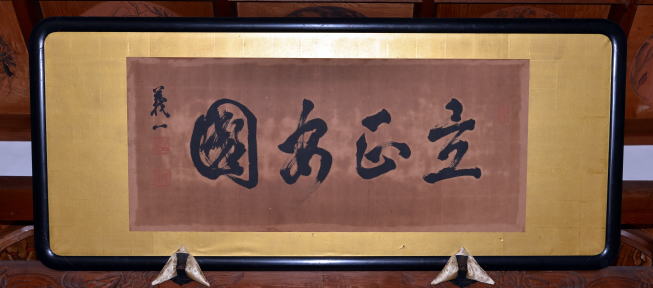 立正安國
義一